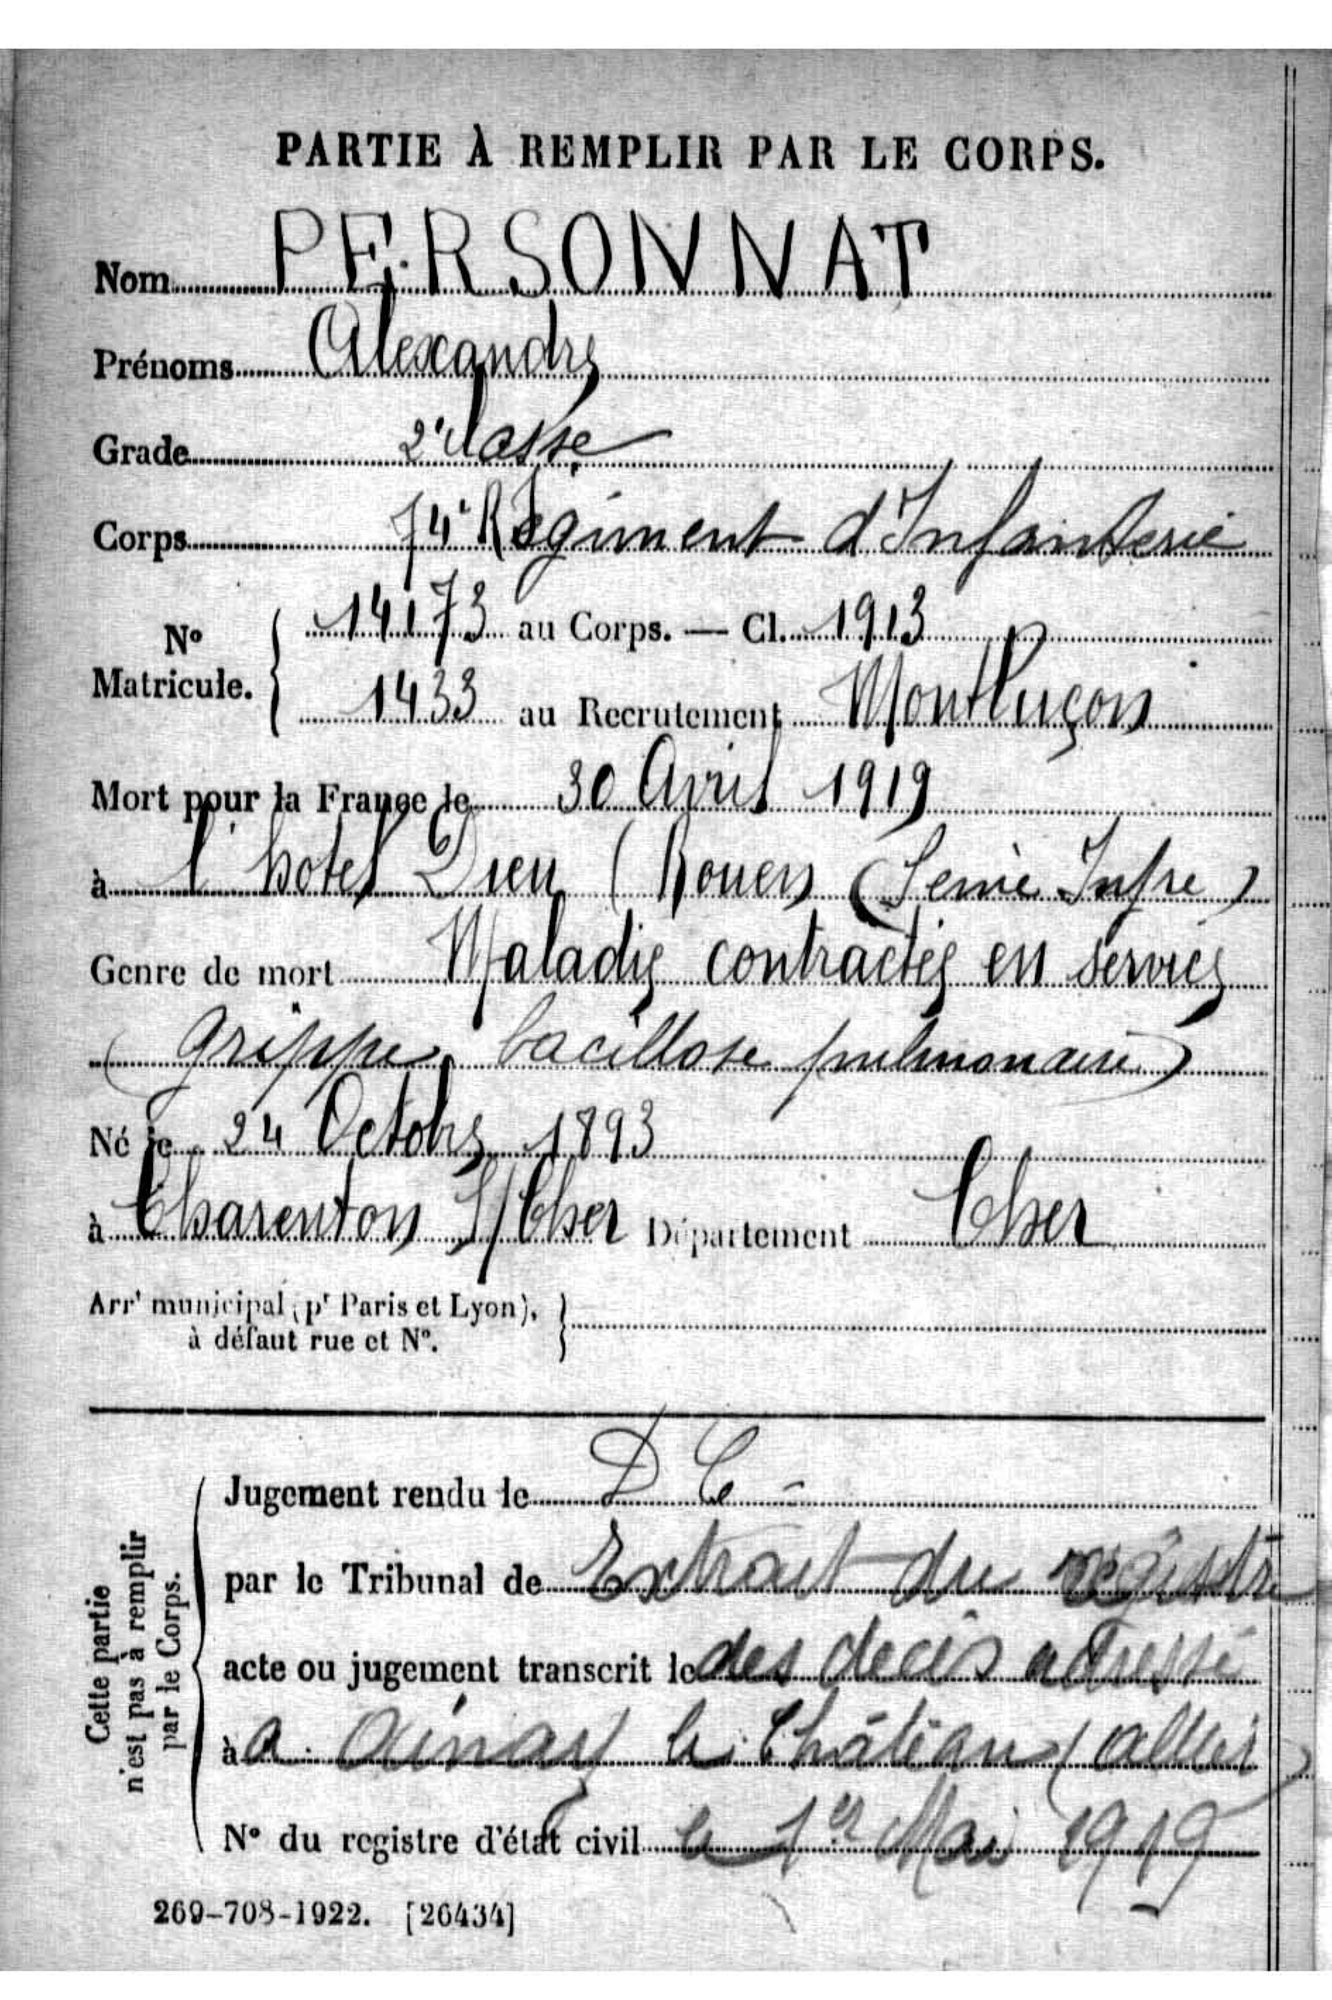 PARTIE À REMPLIR PAR LE CORPS.
Nom PERSONNAT
Prénoms Alexandre
Grade 2e classe
Corps 74e Régiment d'Infanterie
N° Matricule. { 14173 au Corps. — Cl. 1913
1433 au Recrutement Montluçon
Mort pour la France le 30 Avril 1919
à l'hotel Dieu (Rouen (Seine Infre)
Genre de mort Maladie contractée en service
(grippe, bacillose pulmonaire)
Né le 24 Octobre 1893
à Charenton S/Cher Département Cher
Arrt municipal (pr Paris et Lyon), à défaut rue et N°. }
Cette partie n'est pas à remplir par le Corps.
Jugement rendu le D C -
par le Tribunal de Extrait du registre
acte ou jugement transcrit le des decès adressé
à a Ainay le Château (Allier)
N° du registre d'état civil le 1er Mai 1919
269-708-1922. [26434]